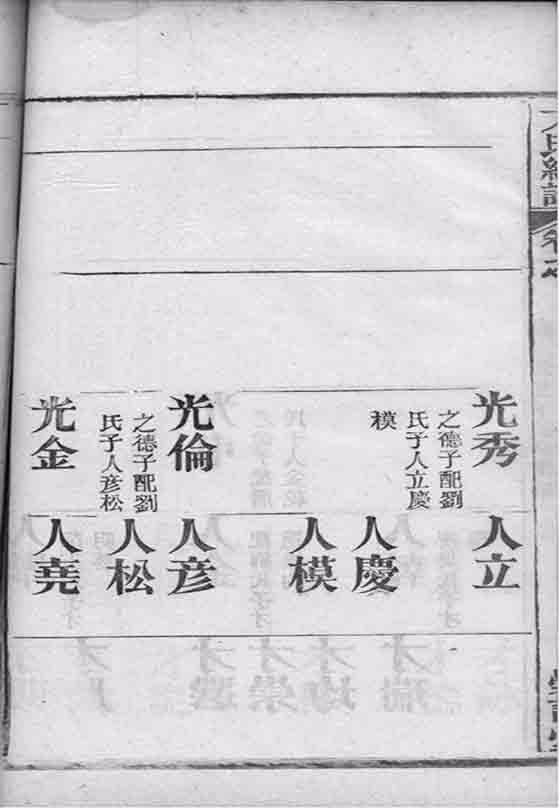 氏
卷
光秀
之德子配劉
氏子人立慶
模
人立
人慶
人模
光倫
之德子配劉
氏子人彥松
人彥
人松
光金
人堯